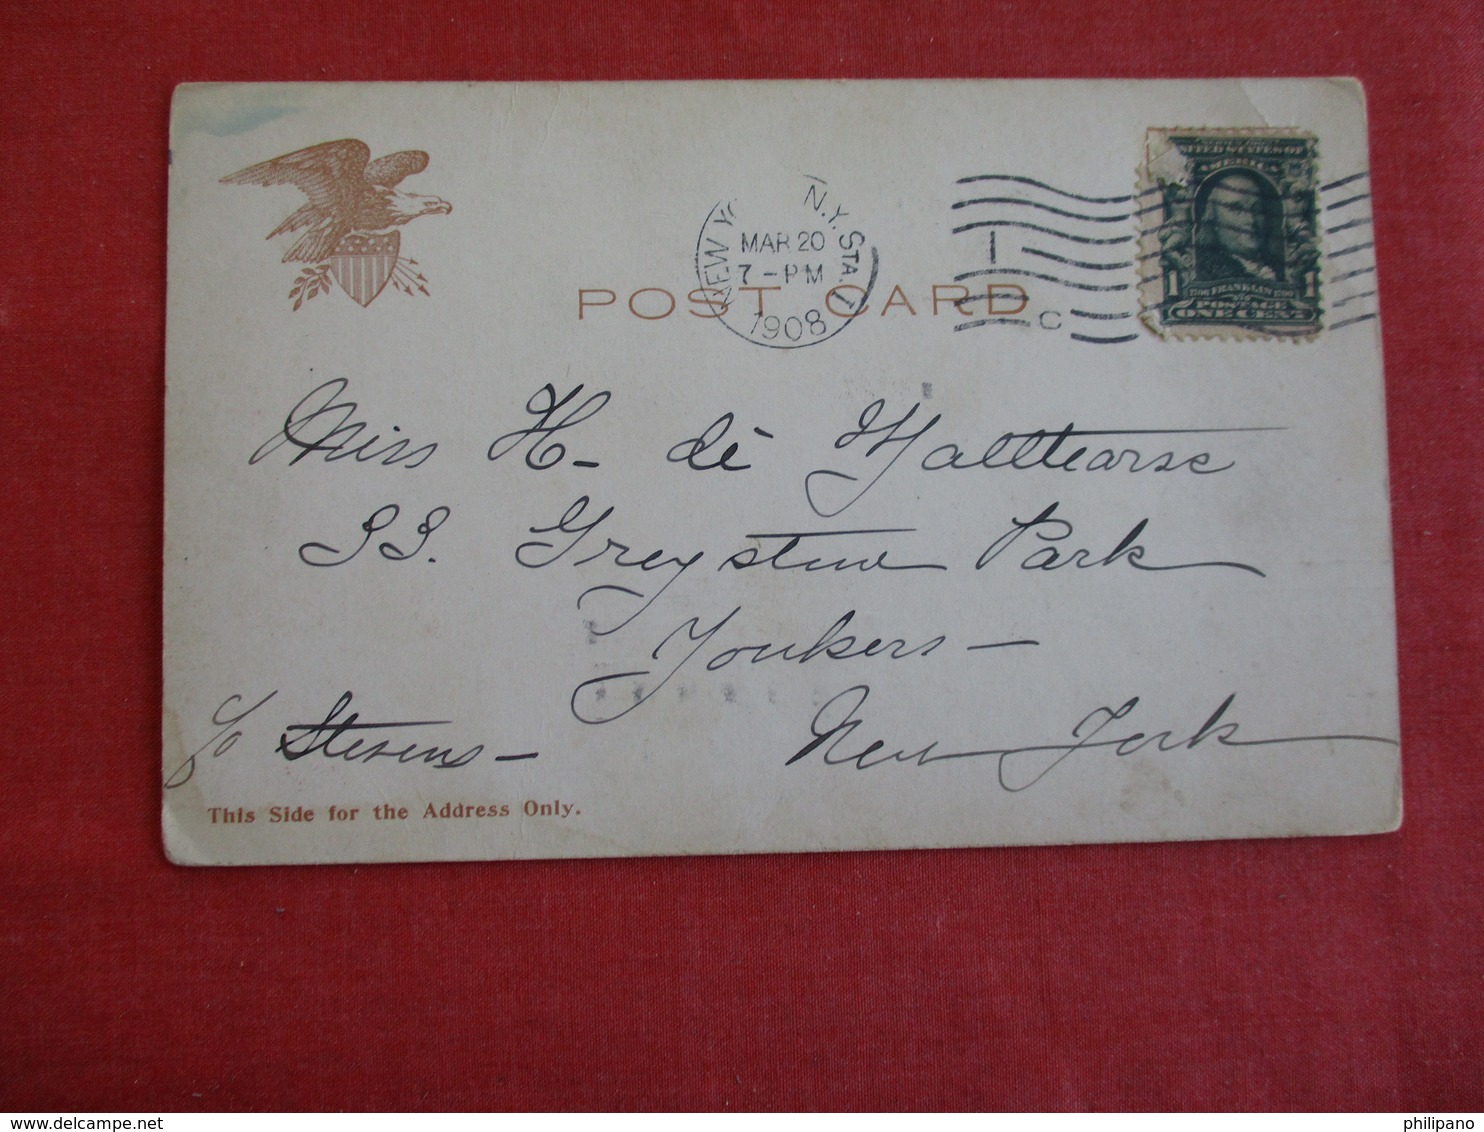 NEW YO N.Y. STA.
MAR 20
7 - PM
1908
1
C
UNITED STATES OF
AMERICA
1 FRANKLIN 1
POSTAGE
ONE CENT
POST CARD
Miss H- de
33. Greystone Park
Yonkers -
c/o Stevens - New York
This Side for the Address Only.
delcampe.net
philipano